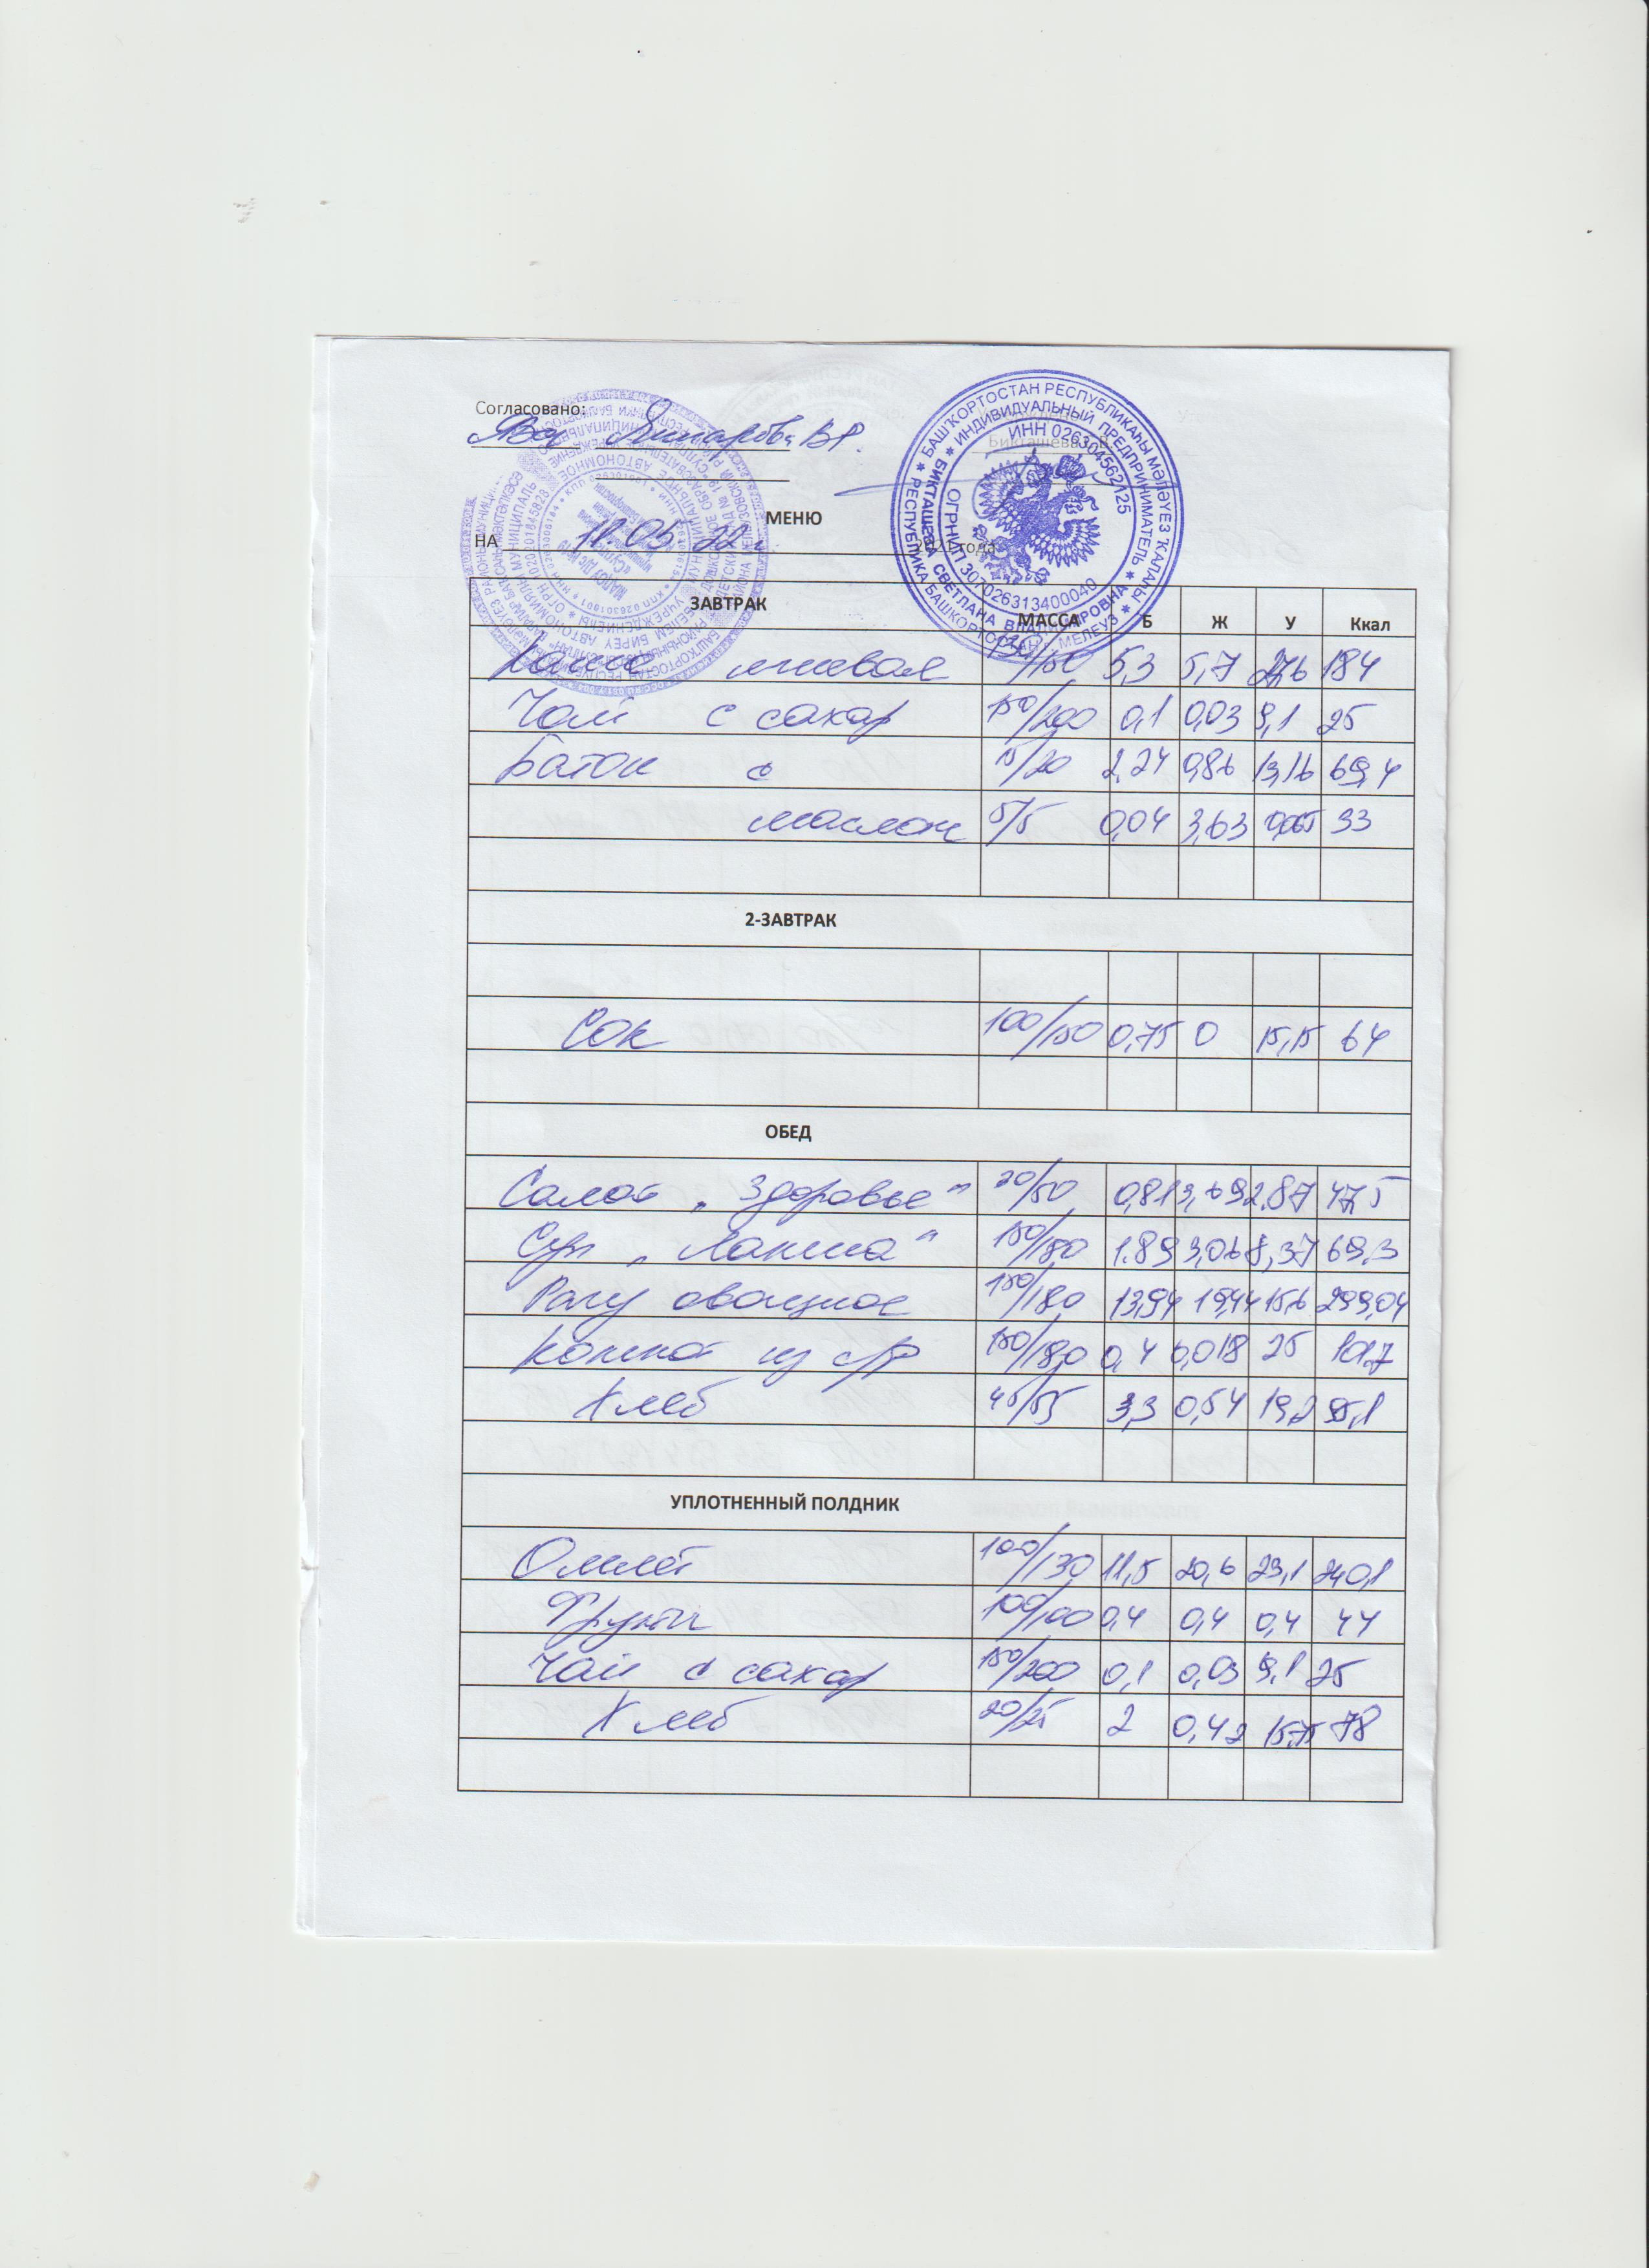 Согласовано:
БР.
Бикташева
МЕНЮ
НА 18.05.22 г 2021 года
БАШҠОРТОСТАН РЕСПУБЛИКАҺЫ МӘЛӘҮЕЗ ҠАЛАҺЫ
РЕСПУБЛИКА БАШКОРТОСТАН Г. МЕЛЕУЗ
ИНДИВИДУАЛЬНЫЙ ПРЕДПРИНИМАТЕЛЬ
БИКТАШЕВА СВЕТЛАНА ВЛАДИМИРОВНА
ИНН 026304562125
ОГРНИП 307026313400040
ЗАВТРАК МАССА Б Ж У Ккал
Каша пшевая /150 5,3 5,7 184
Чай с сахар 150/200 0,1 0,03 9,1 25
Батон с 15/20 2.24 0,86 13,16 69,4
маслом 5/5 0,04 3,63 0,065 33
2-ЗАВТРАК
Сок 100/150 0,75 0 15,15 64
ОБЕД
Салат „Здоровье" 30/50 0,81 3,69 2.87 47,5
Суп „Лапша" 150/180 1.89 3,06 8,37 69,3
Рагу овощное 150/180 13,94 19,44 15,6 299,04
Компот из с/ф 150/180 0,4 0,018 25 101,7
Хлеб 45/55 3,3 0,54 19,2 95,1
УПЛОТНЕННЫЙ ПОЛДНИК
Омлет 100/130 11,5 20,6 23,1 240,1
Фрукты 100/100 0,4 0,4 0,4 44
Чай с сахар 150/200 0,1 0,03 9,1 25
Хлеб 20/25 2 0,42 15,75 78